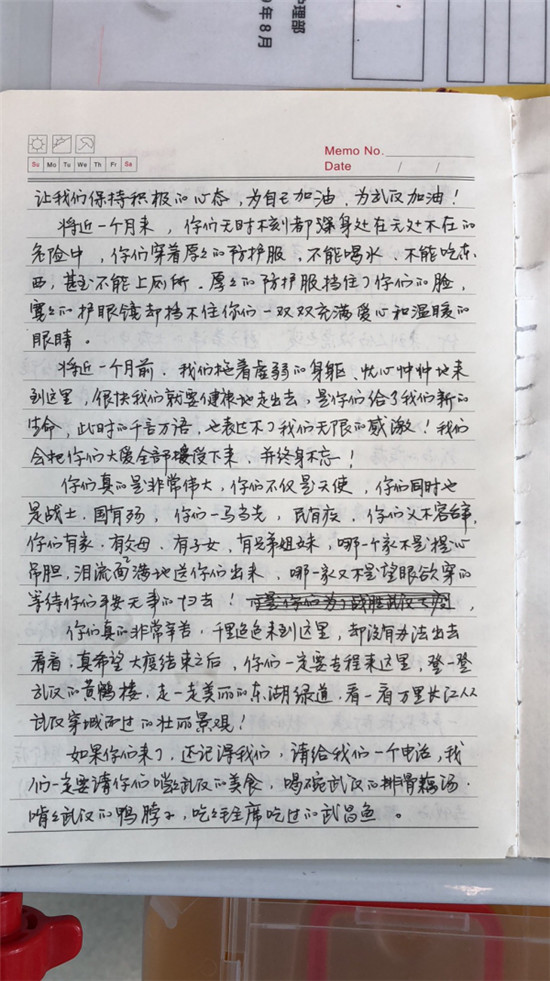 护理部
9年8月
Memo No.
Date / /
Su Mo Tu We Th Fr Sa
让我们保持积极的心态,为自己加油,为武汉加油!
将近一个月来,你们无时不刻都深身处在无处不在的
危险中,你们穿着厚厚的防护服,不能喝水、不能吃东
西,甚至不能上厕所。厚厚的防护服挡住了你们的脸,
雾雾的护眼镜却挡不住你们一双双充满爱心和温暖的
眼睛。
将近一个月前,我们拖着虚弱的身躯、忧心忡忡地来
到这里,很快我们就要健康地走出去,是你们给了我们新的
生命,此时的千言万语,也表达不了我们无限的感激!我们
会把你们大爱全部接受下来,并终身不忘!
你们真的是非常伟大,你们不仅是天使,你们同时也
是战士,国有难,你们一马当先,民有疾,你们义不容辞,
你们有家,有父母,有子女,有兄弟姐妹,哪一个家不是提心
吊胆,泪流满面地送你们出来,哪一家又不是望眼欲穿的
等待你们平安无事的归去!
你们真的非常辛苦,千里迢迢来到这里,却没有办法出去
看看,真希望大疫结束之后,你们一定要专程来这里,登一登
武汉的黄鹤楼,走一走美丽的东湖绿道,看一看万里长江从
武汉穿城而过的壮丽景观!
如果你们来了,还记得我们,请给我们一个电话,我
们一定要请你们尝尝武汉的美食,喝碗武汉的排骨藕汤,
啃啃武汉的鸭脖子,吃吃毛主席吃过的武昌鱼。